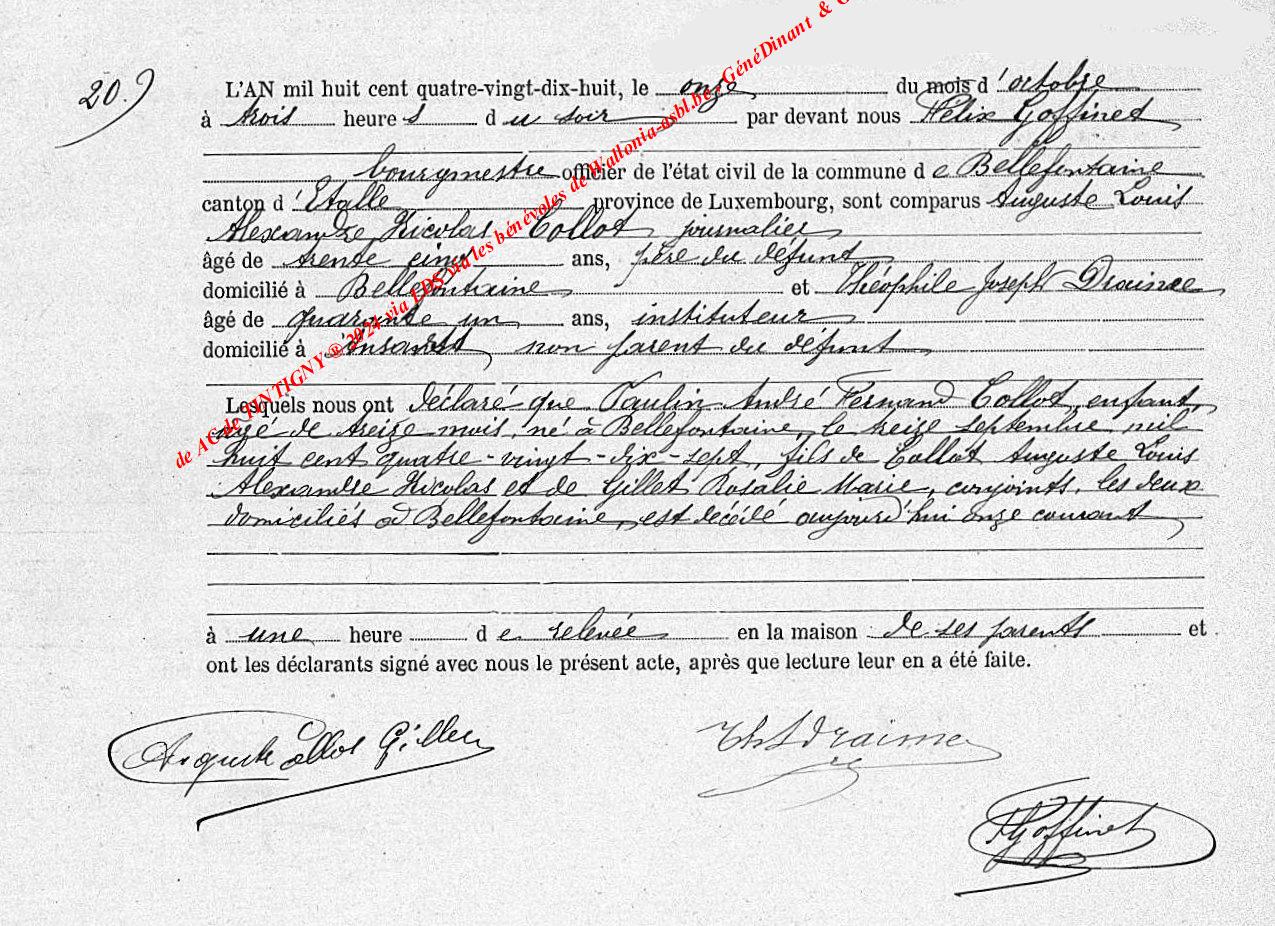 de AC de TINTIGNY ® 2024 via LDS via les bénévoles de Wallonia-asbl.be, GénéDinant & G
20)
L'AN mil huit cent quatre-vingt-dix-huit, le onze du mois d'octobre
à trois heures du soir par devant nous Félix Goffinet
bourgmestre officier de l'état civil de la commune de Bellefontaine
canton d'Etalle province de Luxembourg, sont comparus Auguste Louis
Alexandre Nicolas Collot journalier
âgé de trente cinq ans, père du défunt
domicilié à Bellefontaine et Théophile Joseph Draime
âgé de quarante un ans, instituteur
domicilié à non parent du défunt
Lesquels nous ont déclaré que Paulin André Fernand Collot, enfant,
âgé de treize mois, né à Bellefontaine, le treize septembre mil
huit cent quatre-vingt-dix-sept, fils de Collot Auguste Louis
Alexandre Nicolas et de Gillet Rosalie Marie, conjoints, les deux
domiciliés à Bellefontaine, est décédé aujourd'hui onze courant
à une heure de relevée en la maison de ses parents et
ont les déclarants signé avec nous le présent acte, après que lecture leur en a été faite.
Auguste Collot Gillet
Th J Draime
F Goffinet